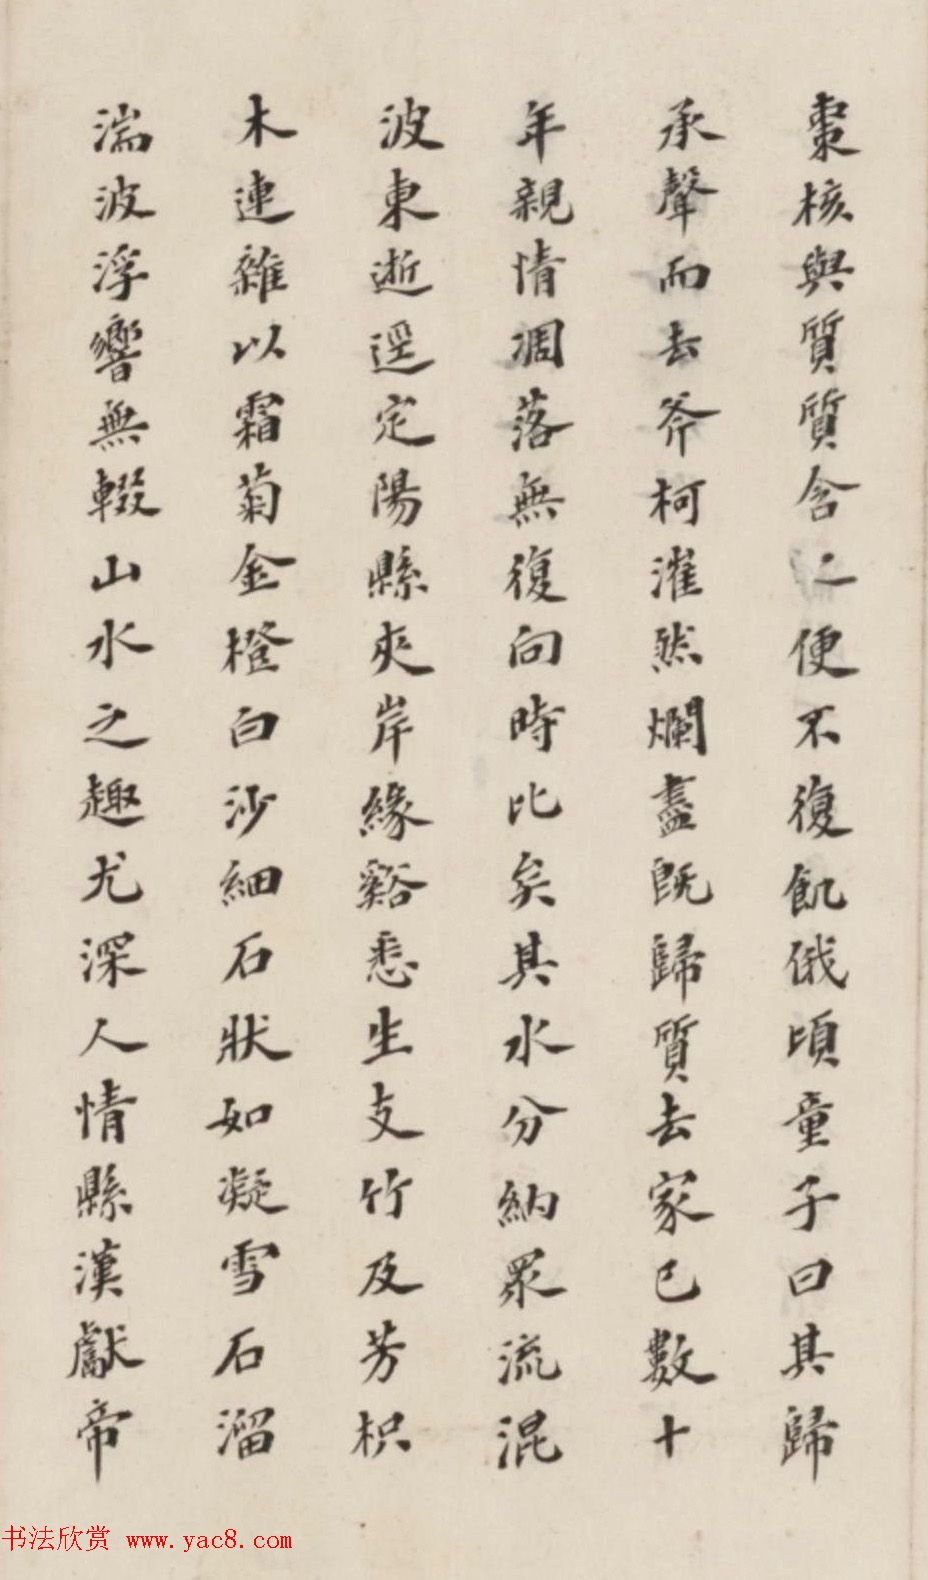 棗核與質質含之便不復飢俄頃童子曰其歸
承聲而去斧柯漼然爛盡旣歸質去家已數十
年親情凋落無復向時比矣其水分納眾流混
波東逝逕定陽縣夾岸緣谿悉生支竹及芳枳
木連雜以霜菊金橙白沙細石狀如凝雪石溜
湍波浮響無輟山水之趣尤深人情縣漢獻帝
书法欣赏 www.yac8.com